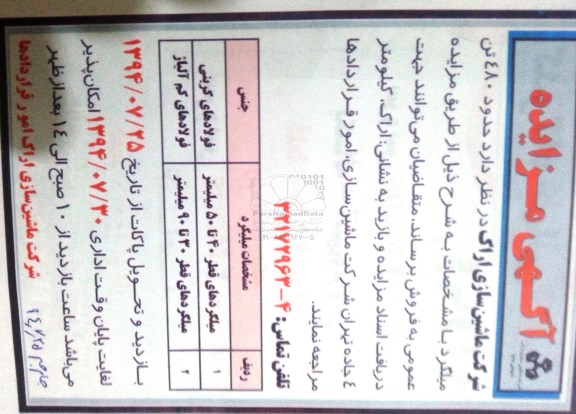 آگهی مزایده
شرکت ماشین سازی اراک در نظر دارد حدود ۴۸۰ تن
میلگرد با مشخصات به شرح ذیل از طریق مزایده
عمومی به فروش برساند، متقاضیان می توانند جهت
دریافت اسناد مزایده و بازدید به نشانی: اراک، کیلومتر
۴ جاده تهران شرکت ماشین سازی، امور قراردادها
مراجعه نمایند.
تلفن تماس: ۴-۳۲۱۷۲۹۶۳
ردیف مشخصات میلگرد جنس
۱ میلگردهای قطر ۴۰ تا ۵۰ میلیمتر فولادهای کربنی
۲ میلگردهای قطر ۳۰ تا ۹۰ میلیمتر فولادهای کم آلیاژ
بازدید و تحویل پاکات از تاریخ ۱۳۹۴/۰۷/۲۵
لغایت پایان وقت اداری ۱۳۹۴/۰۷/۳۰ امکان پذیر
می باشد ساعت بازدید از ۱۰ صبح الی ۱۴ بعدازظهر
شرکت ماشین سازی اراک امور قراردادها
ParsNamadData